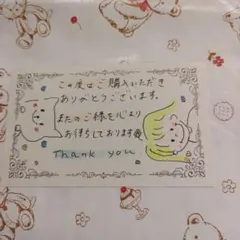 この度はご購入いただき
ありがとうございます。
またのご縁を心より
お待ちしております
Thank you